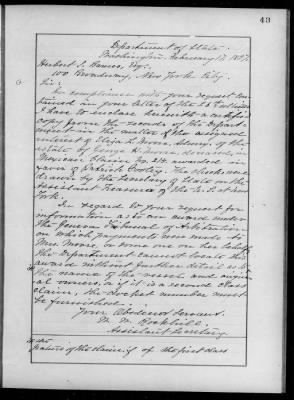 43
Department of State.
Washington, February 17, 1897.
Herbert S.
100 Broadway, New York City.
Sir:
In compliance with your request contained in your letter of the
I have to enclose herewith a certified
copy from the records of the Department in the matter of the assigned
interest of Eliza R. Moore, Admx. of the
estate of George H. Moore, deceased, in
Mexican Claim No. awarded in
favor of Patrick The check was
drawn by the Secretary of State on the
Assistant Treasurer of the U. S. at New
York.
In regard to your request for
information as to an award under
the Geneva Tribunal of Arbitration,
on which payments were made to
Mrs. Moore, or some one on her behalf,
the Department cannot locate the
award without further detail as to
the name of the vessel and original owners, or if it is a second class
claim, the docket number must
be furnished.
Your obedient servant,
W. W. Rockhill,
Assistant Secretary.
nature of the claim, if of the first class